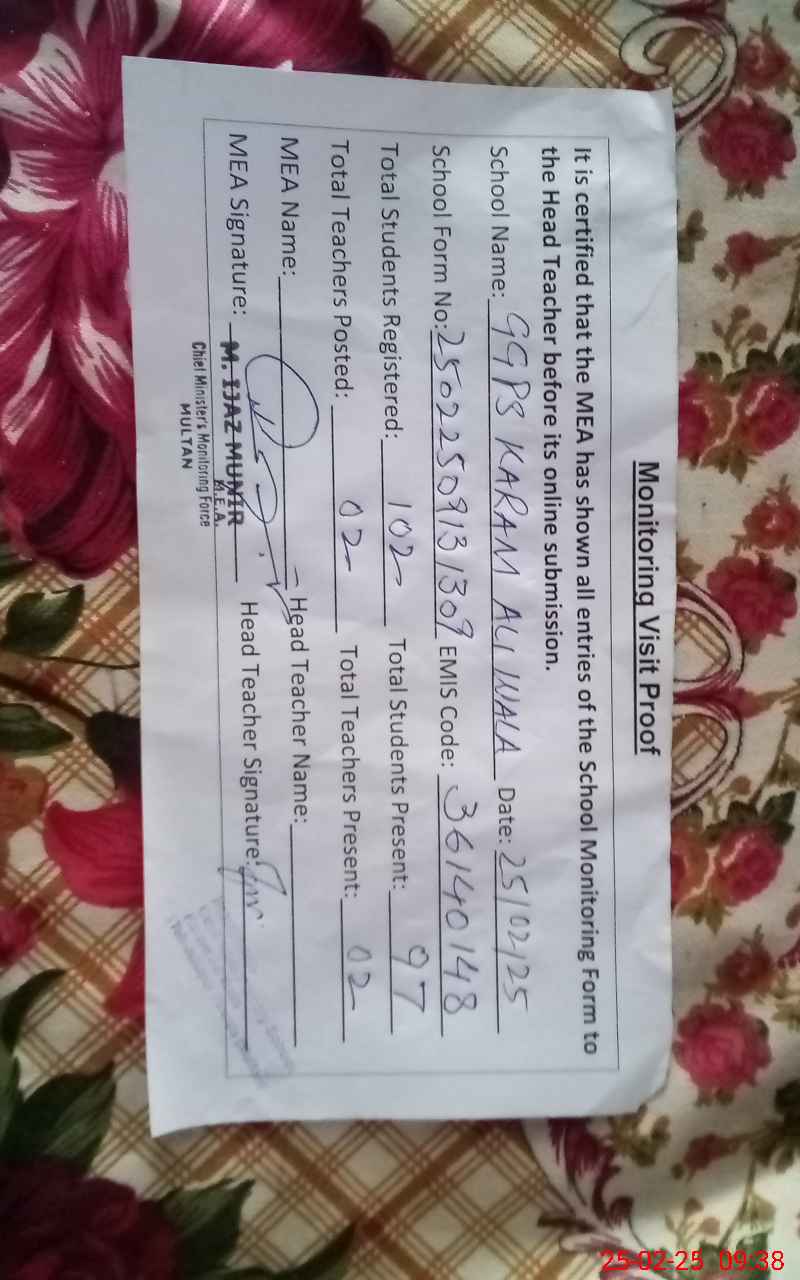 Monitoring Visit Proof
It is certified that the MEA has shown all entries of the School Monitoring Form to
the Head Teacher before its online submission.
School Name: GGPS KARAM ALI WALA Date: 25/02/25
School Form No: 25022509131309 EMIS Code: 36140148
Total Students Registered: 102 Total Students Present: 97
Total Teachers Posted: 02 Total Teachers Present: 02
MEA Name: Head Teacher Name:
MEA Signature: Head Teacher Signature:
M. IJAZ MUNIR
M.E.A.
Chief Minister's Monitoring Force
MULTAN
25-02-25 09:38